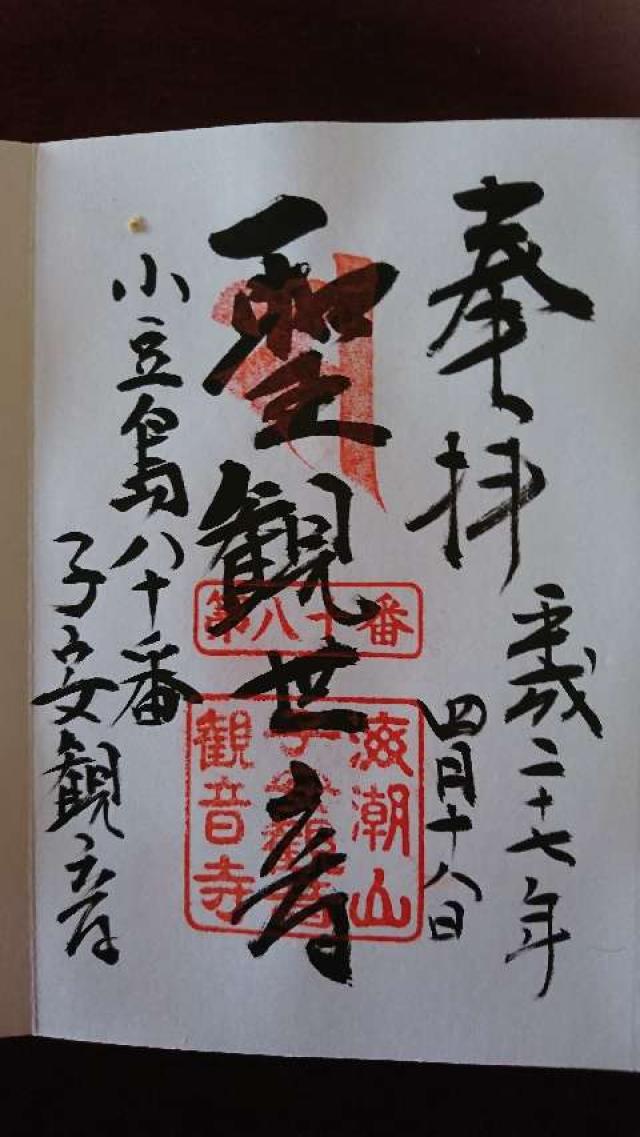 奉拝
平成二十七年
四月十八日
聖観世音
小豆島八十番
子安観音
第八十番
海潮山
子安観音
観音寺